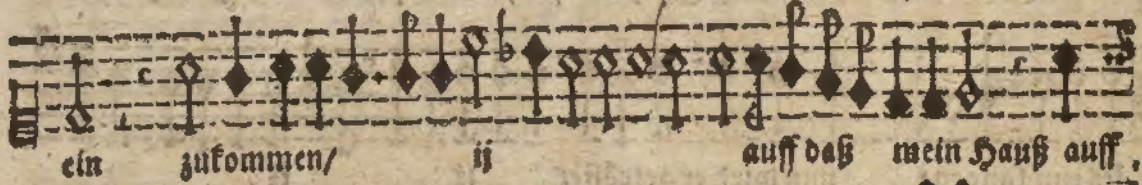 ein zukommen/ ij auff daß mein Hauß auff